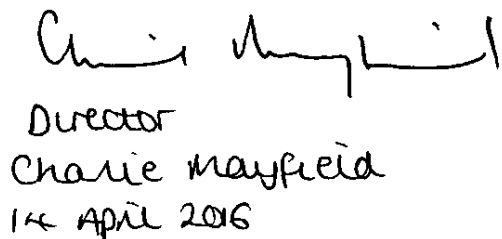 Charlie Mayfield
Director
Charlie Mayfield
14 April 2016